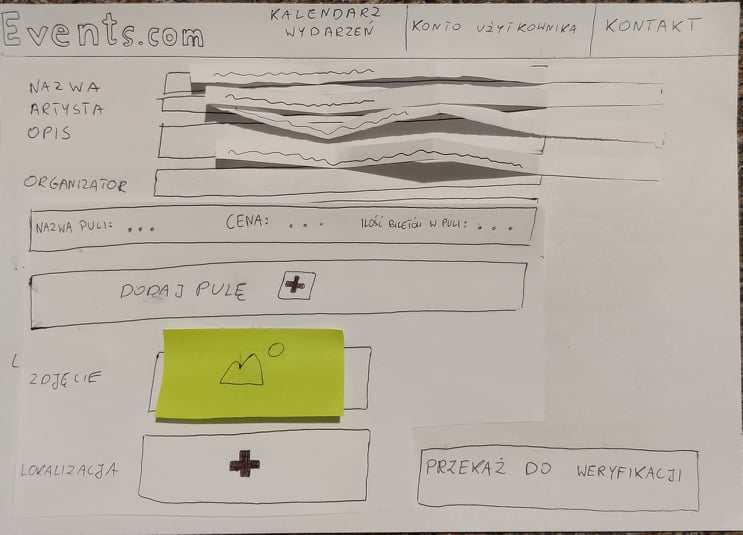 Events.com
KALENDARZ
WYDARZEŃ
KONTO UŻYTKOWNIKA
KONTAKT
NAZWA
ARTYSTA
OPIS
ORGANIZATOR
NAZWA PULI: ... CENA: ... ILOŚĆ BILETÓW W PULI: ...
DODAJ PULĘ
ZDJĘCIE
LOKALIZACJA
PRZEKAŻ DO WERYFIKACJI